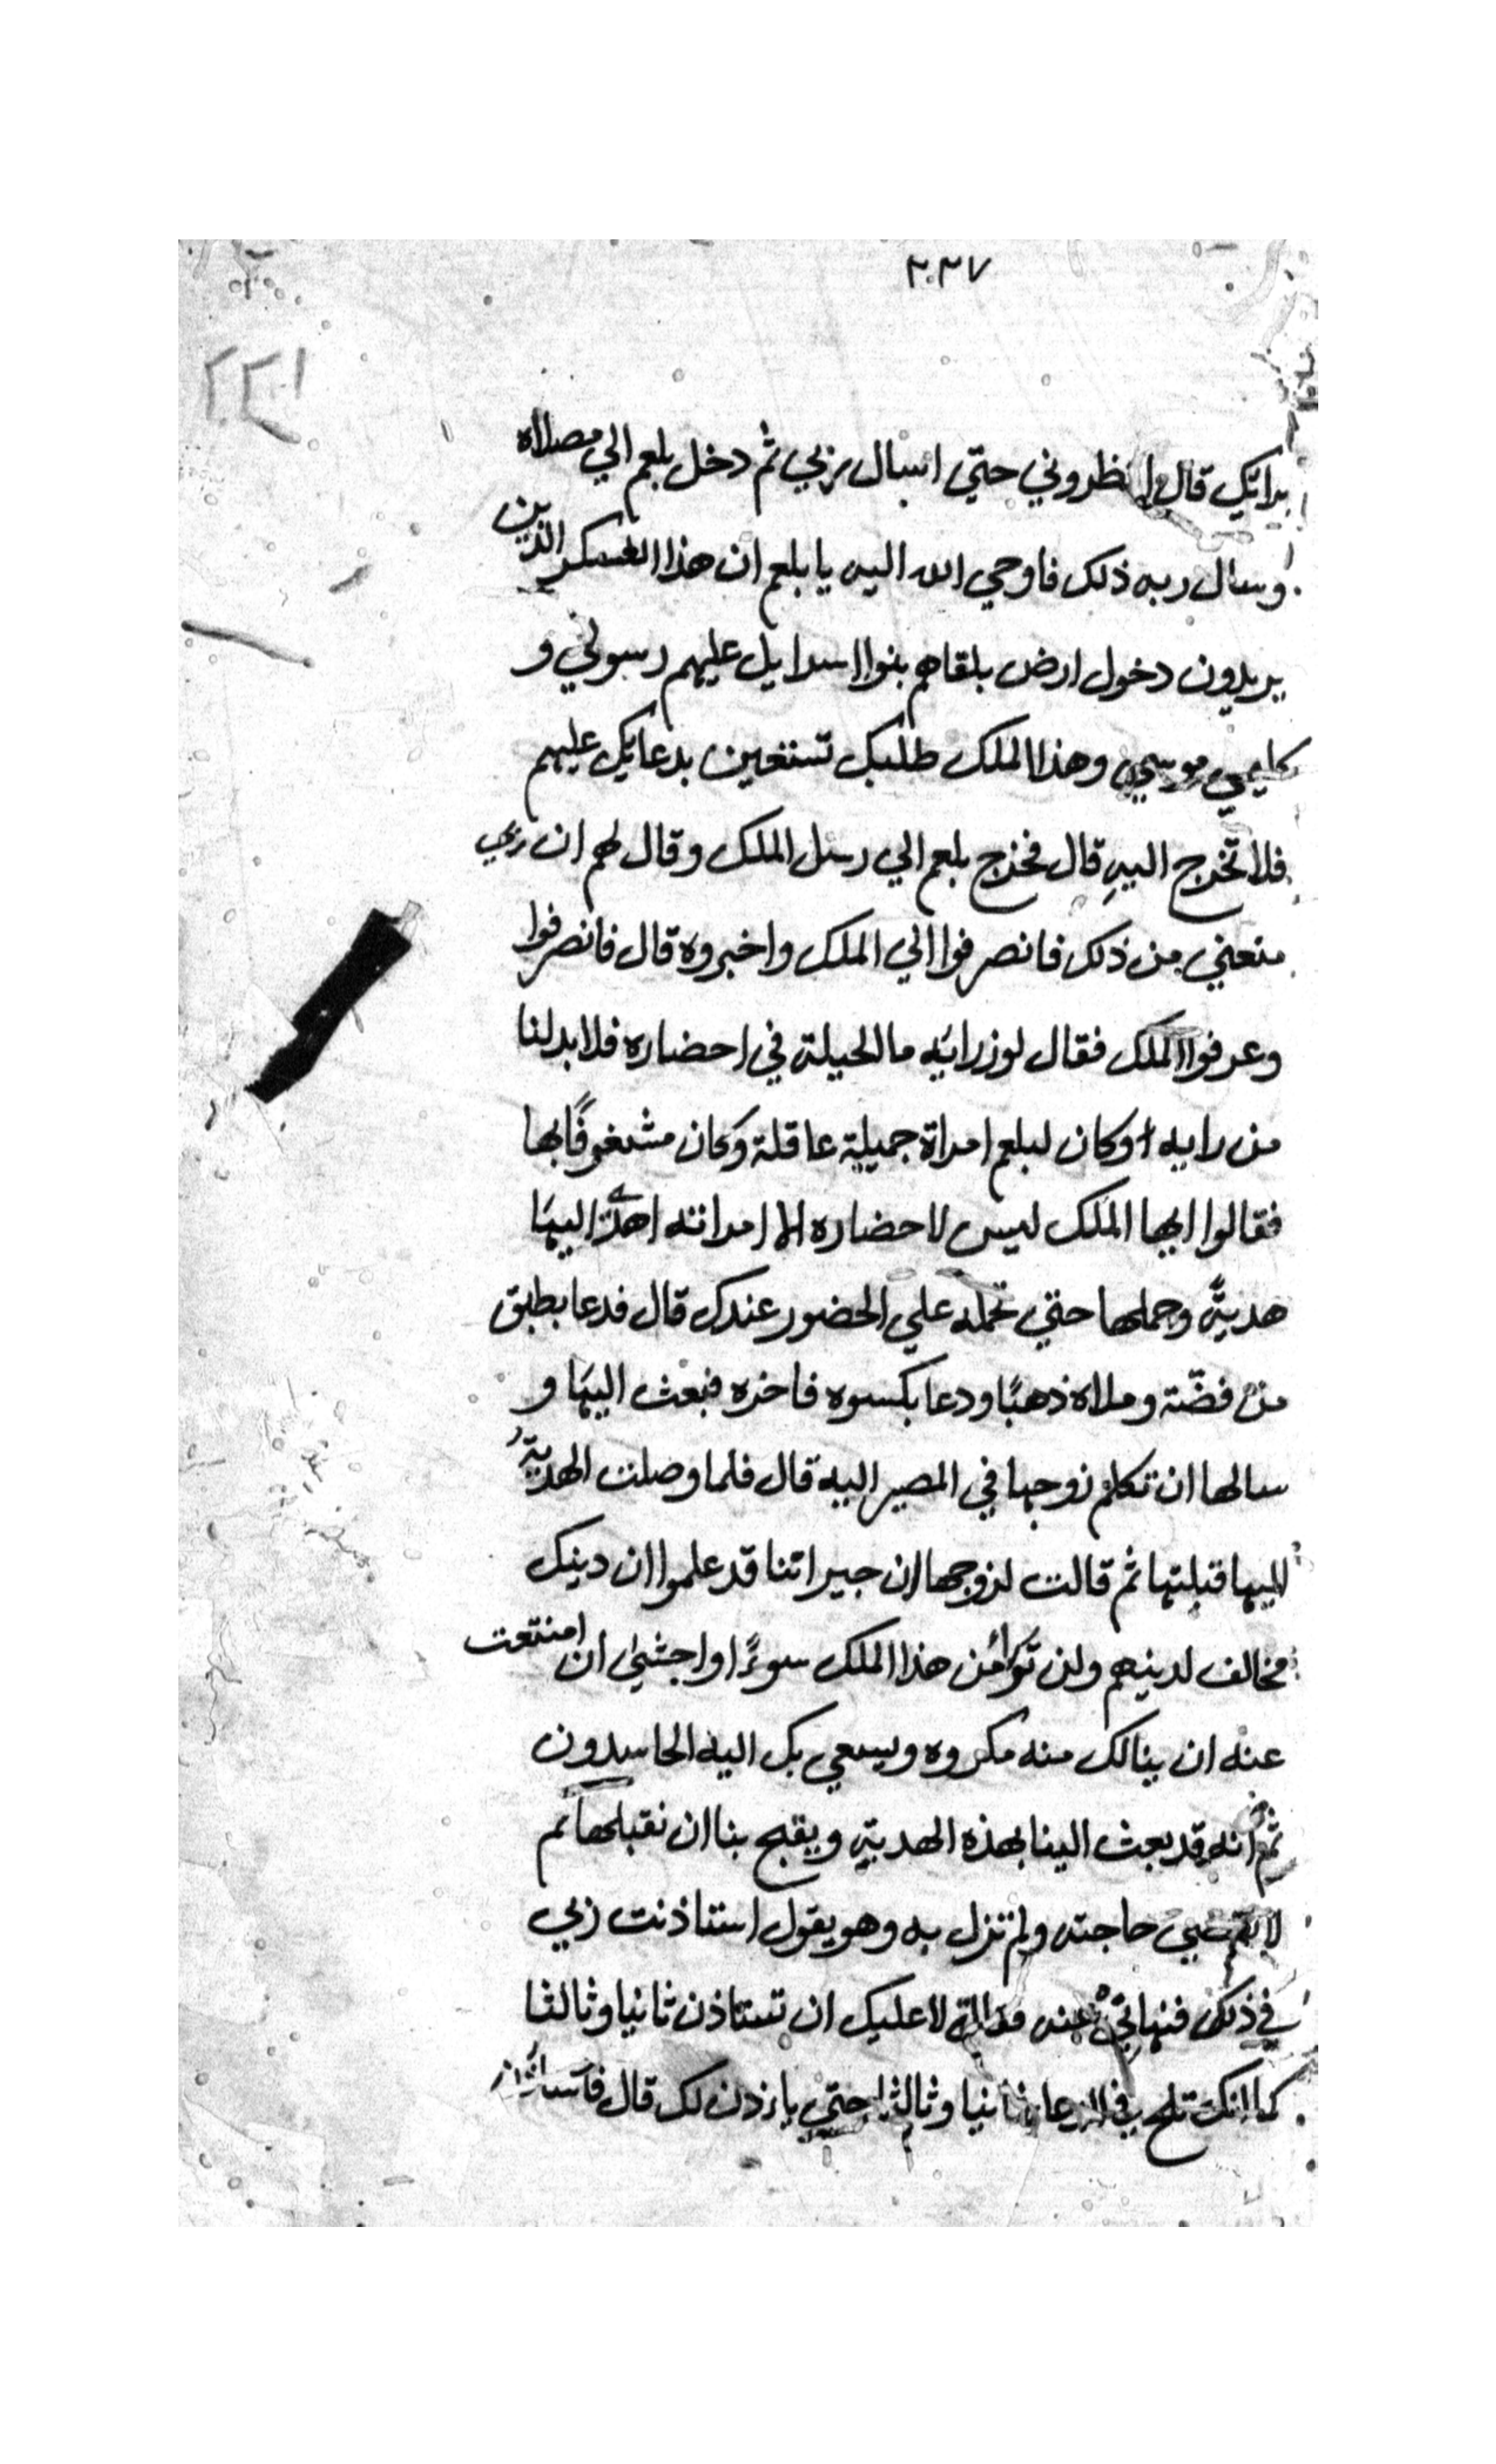 ٢٠٣٧
٢٢١
برائك قال انظروني حتي اسال ربي ثم دخل بلعم الي مصلاه
وسال ربه ذلك فاوحي الله اليه يا بلعم ان هذا العسكر الذين
يريدون دخول ارض بلقاهم بنوا اسرايل عليهم رسولي و
كليمي موسي وهذا الملك طلبك تستعين بدعايك عليهم
فلا تخرج اليه قال فخرج بلعم الي رسل الملك وقال لهم ان ربي
منعني من ذلك فانصرفوا الي الملك واخبروه قال فانصرفوا
وعرفوا الملك فقال لوزرايه ما الحيلة في احضاره فلا بد لنا
من رايه وكان لبلعم امراة جميلة عاقلة وكان مشغوفًا بها
فقالوا ايها الملك ليس لاحضاره الا امراته اهدي اليها
هديةً وحملها حتي تحمله علي الحضور عندك قال فدعا بطبق
من فضّة وملاه ذهبًا ودعا بكسوه فاخره فبعث اليها و
سالها ان تكلم زوجها في المصير اليه قال فلما وصلت الهديةُ
اليها قبلتها ثم قالت لزوجها ان جيراننا قد علموا ان دينك
مخالف لدينهم ولن توأمن هذا الملك سوءًا واخشي ان امتنعت
عنه ان ينالك منه مكروه ويسعي بك اليه الحاسدون
ثم انه قد بعث الينا بهذه الهدية ويقبح بنا ان نقبلها ثم
لا نقضي حاجته ولم تزل به وهو يقول استاذنت ربي
في ذلك فنهاني عنه قالت لا عليك ان تستاذن ثانيا وثالثا
كما انك تلح في الدعا ثانيا وثالثا حتي ياذن لك قال